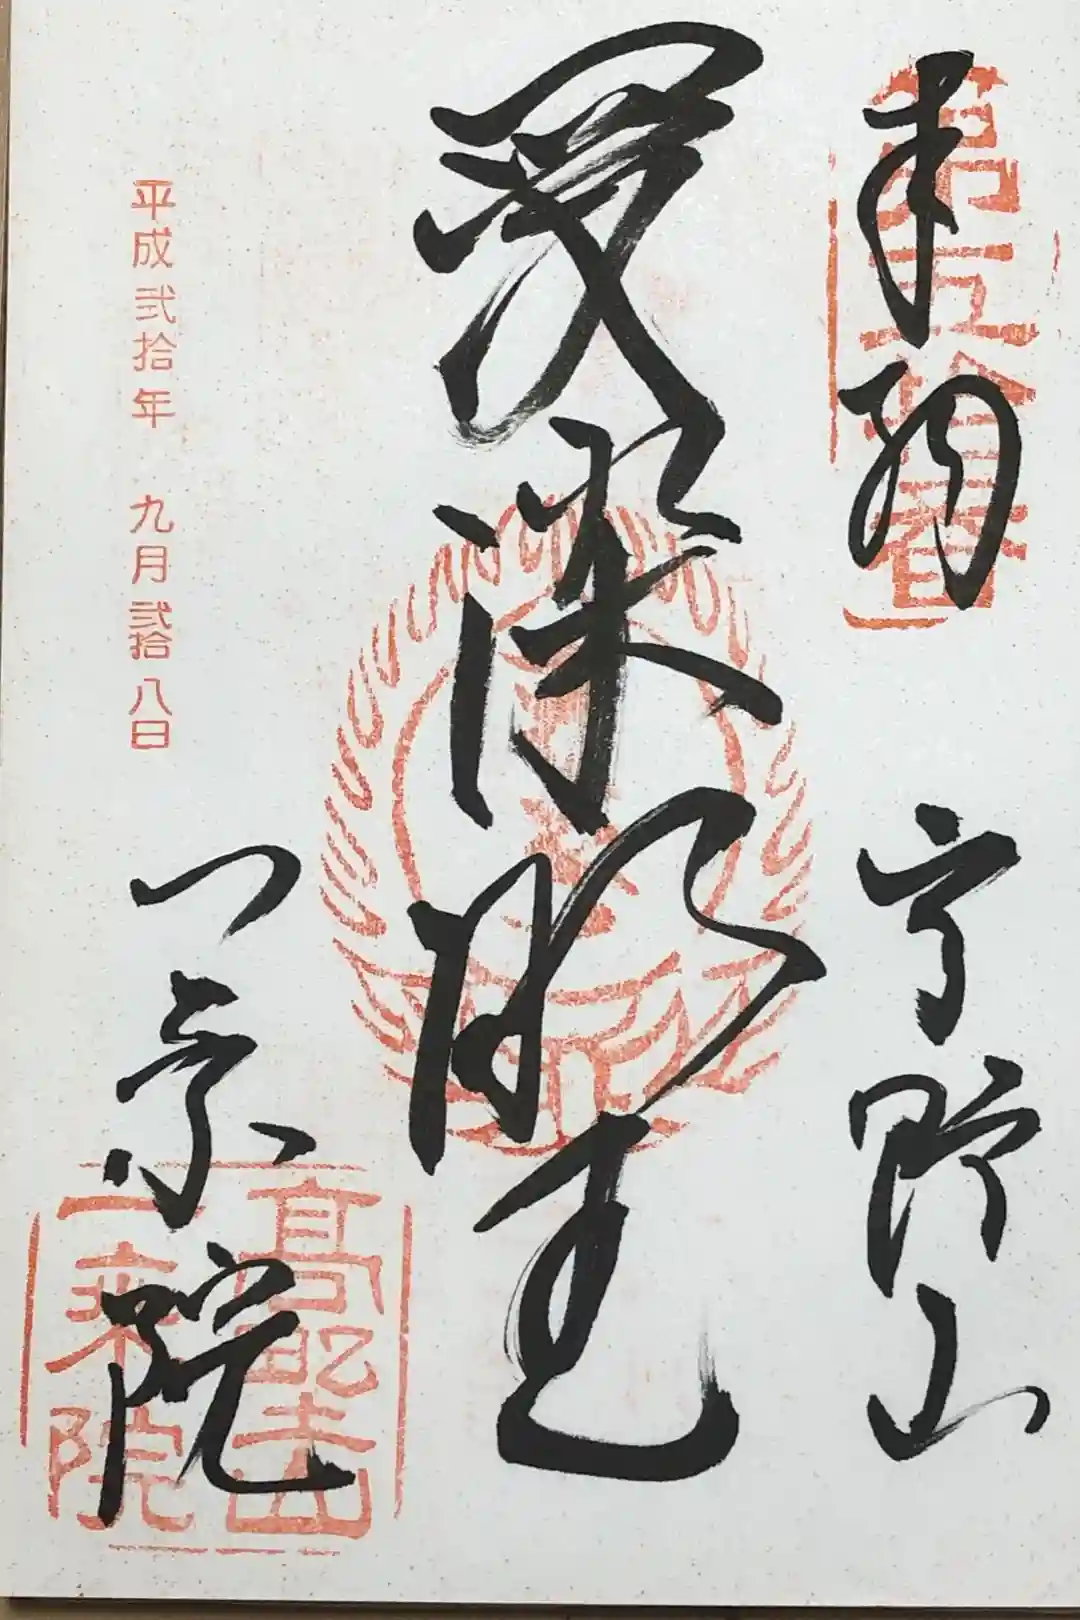 奉納 高野山
第五拾番
愛染明王
平成弐拾年 九月弐拾八日
一乗院
高野山
一乗院